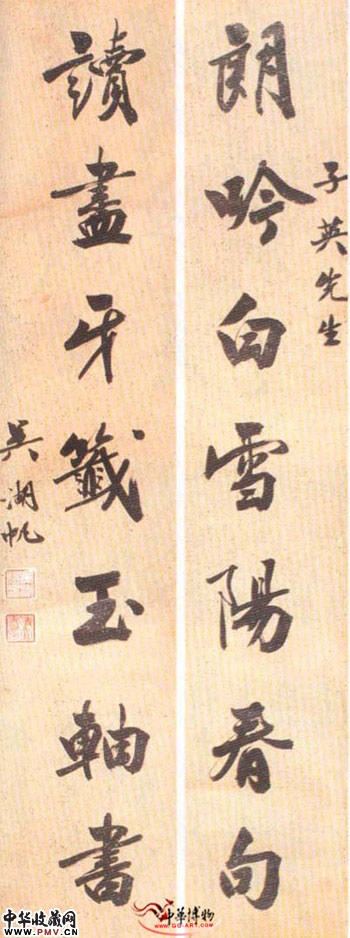 朗吟白雪陽春句
子英先生
讀盡牙籤玉軸書
吳湖帆
中华收藏网
WWW.PMV.CN
中華博物
WWW.GG-ART.COM